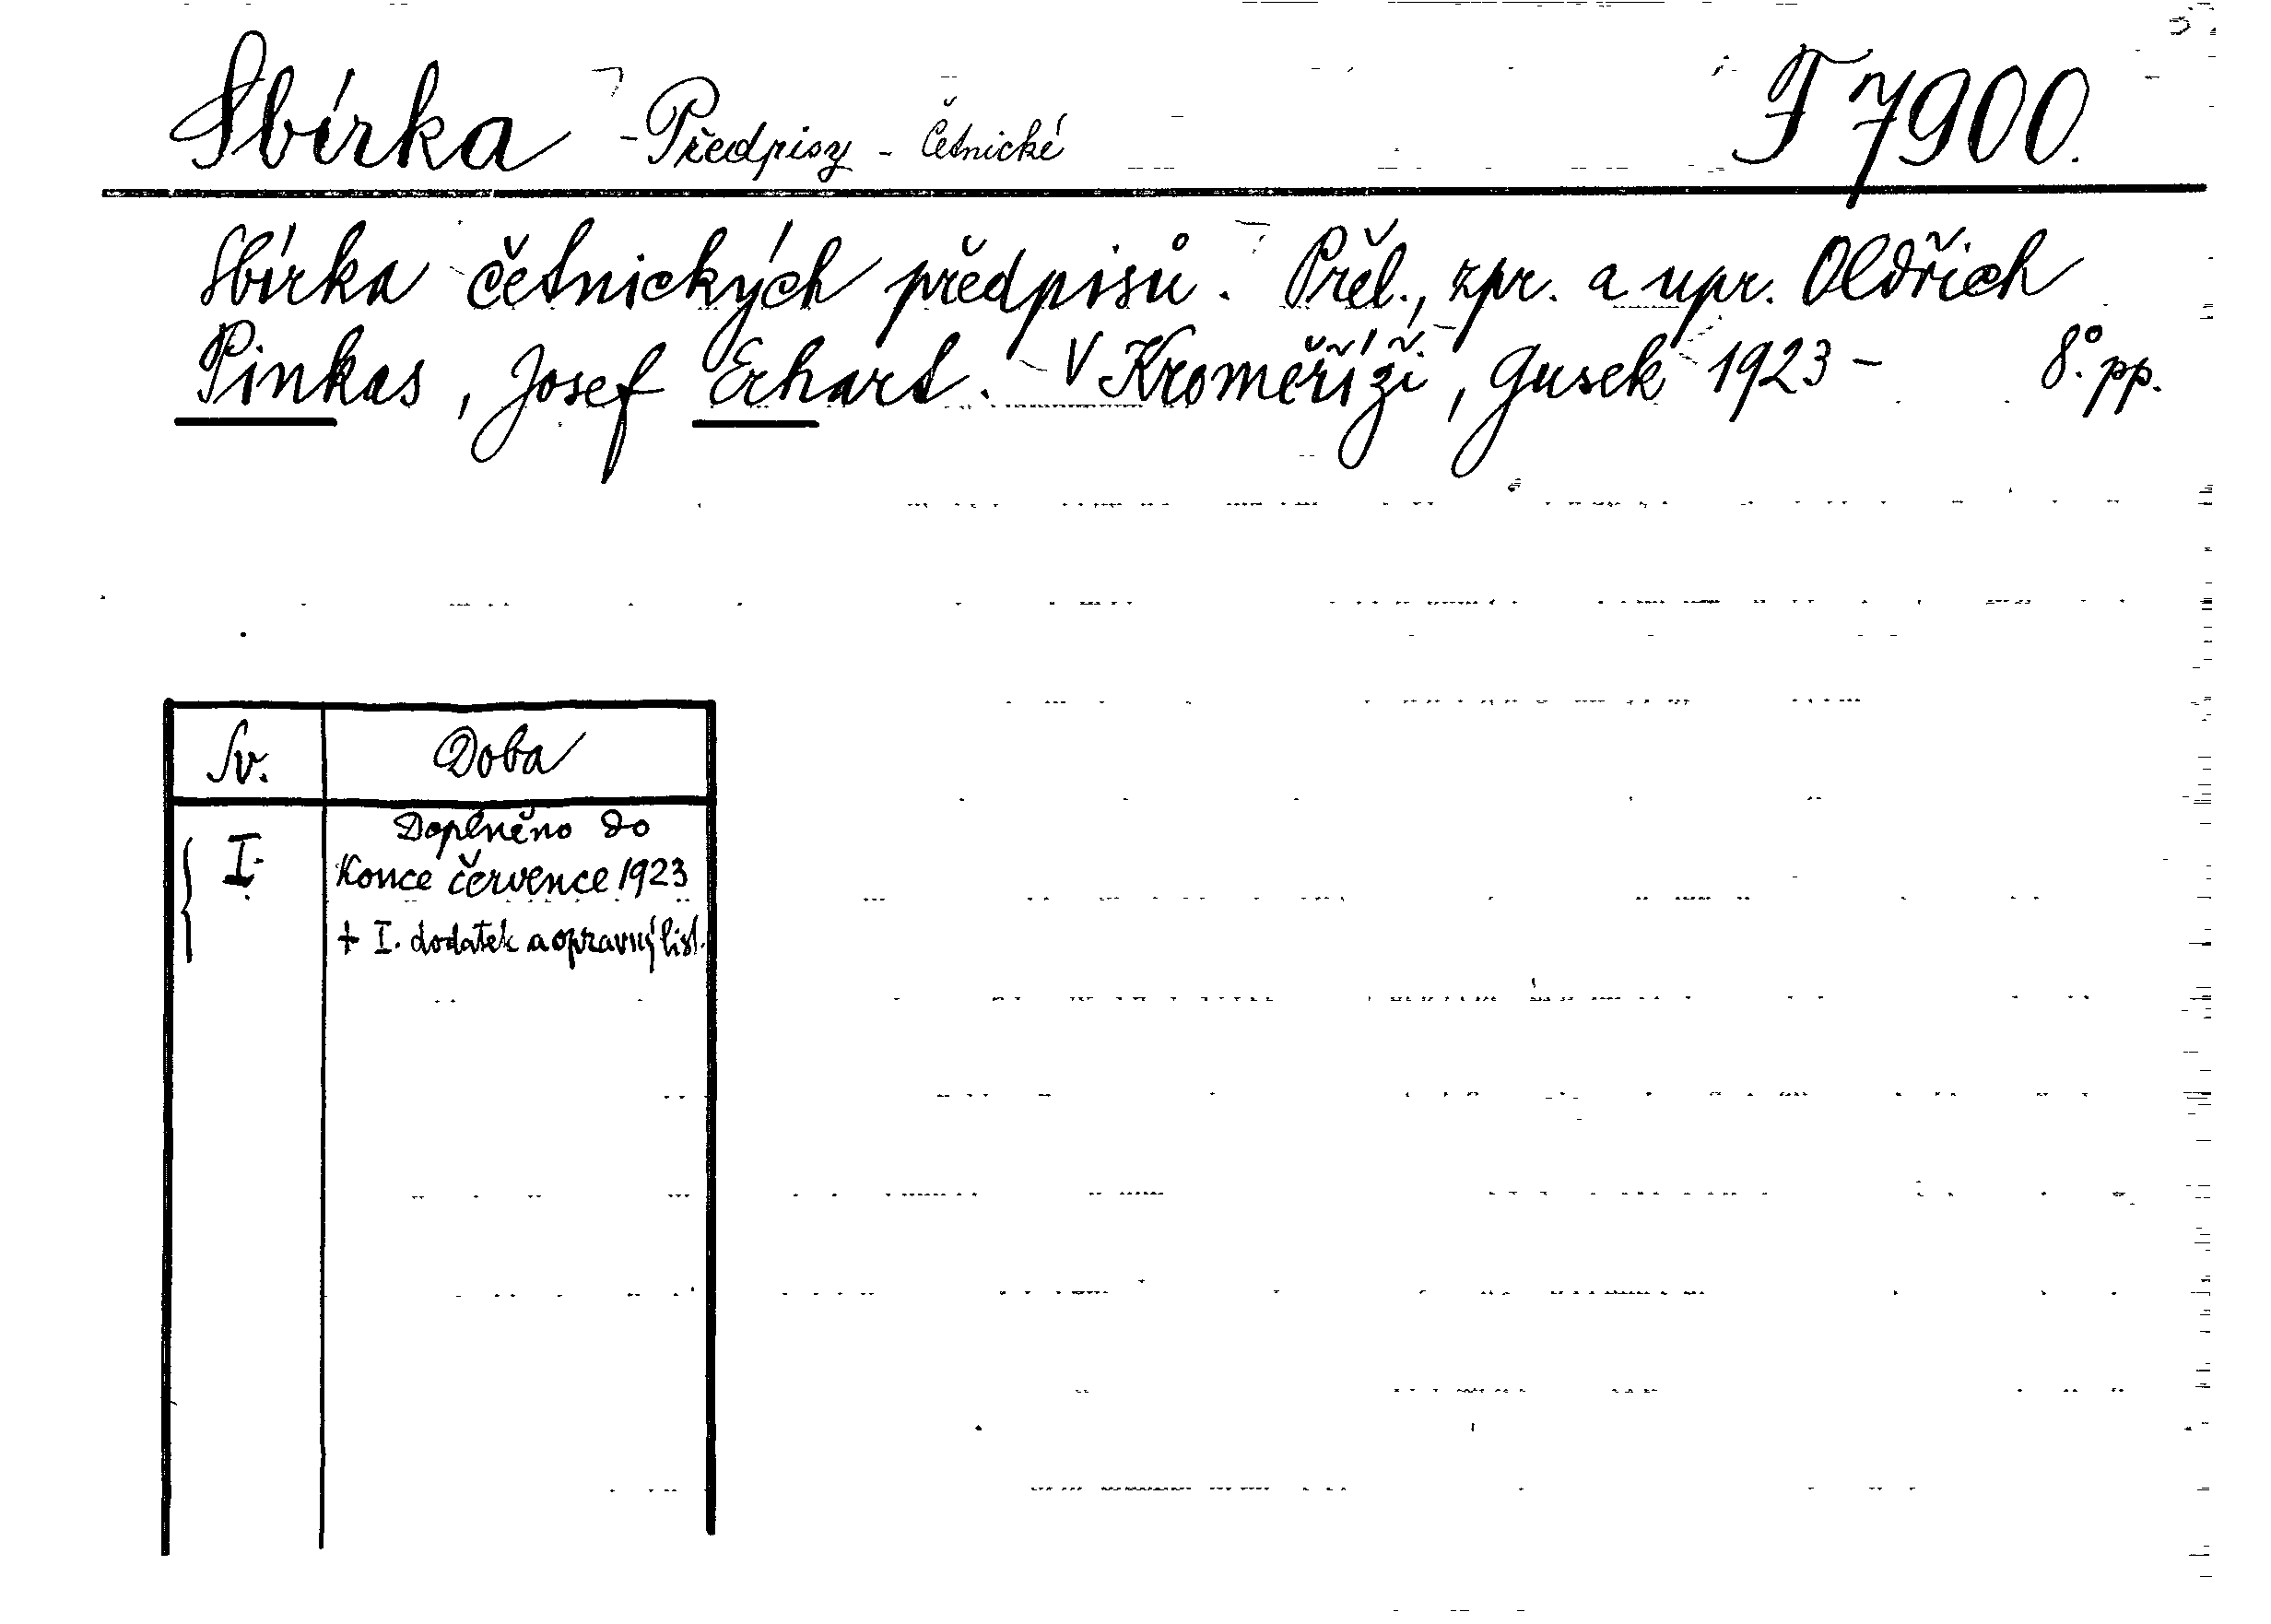 Sbírka - Předpisy - četnické F 7900.
Sbírka četnických předpisů. Přel., zpr. a upr. Oldřich
Pinkas, Josef Erhart. V Kroměříži, Gusek 1923 - 8°. pp.
Sv. Doba
I. Doplněno do
konce července 1923
+ I. dodatek a opravný list.